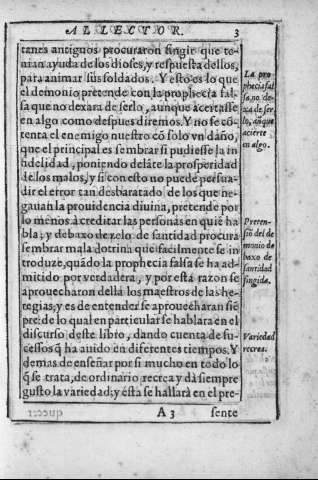 AL LECTOR. 3
tanes antiguos procuraron fingir que te-
nian ayuda de los dioses, y respuesta dellos,
para animar sus soldados. Y esto es lo que
el demonio pretende con la prophecia fal-
sa que no dexara de serlo, aunque acertasse
en algo como despues diremos. Y no se cõ-
tenta el enemigo nuestro cõ solo vn daño,
que el principal es sembrar si pudiesse la in
fidelidad, poniendo delãte la prosperidad
de los malos, y si con esto no puede persua-
dir el error tan desbaratado de los que ne-
gauan la prouidencia diuina, pretende por
lo menos acreditar las personas en quiẽ ha
bla; y debaxo de zelo de santidad procura
sembrar mala dotrina que facilmente se in
troduze, quãdo la prophecia falsa se ha ad-
mitido por verdadera, y por está razon se
aprouecharon della los maestros de las he-
regias, y es de entender se aprouecharan siẽ
pre: de lo qual en particular se hablara en el
discurso deste libro, dando cuenta de su-
cessos q̃ ha auido en diferentes tiempos. Y
demas de enseñar por si mucho en todo lo
q̃ se trata, de ordinario recrea y dà siempre
gusto la variedad; y ésta se hallará en el pre-
A 3 sente
La pro
phecia fal
sa, no de-
xa de ser
lo, aũque
acierte
en algo.
Preten-
siõ del de
monio de
baxo de
santidad
fingida.
Variedad
recrea.